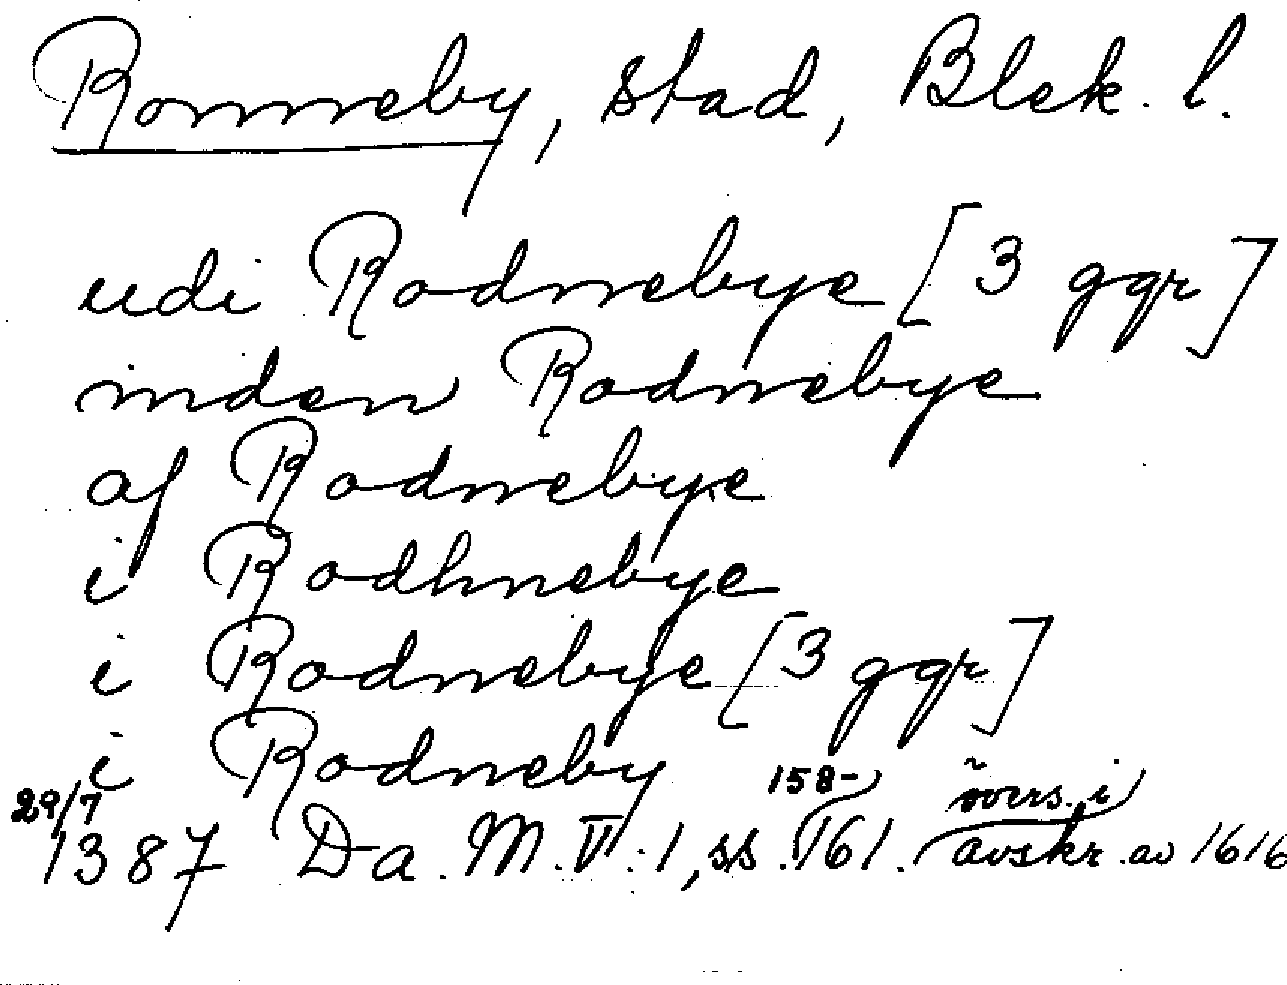 Ronneby, stad, Blek. l.
udi Rodnebye [3 ggr]
inden Rodnebye
af Rodnebye
i Rodhnebye
i Rodnebye [3 ggr]
i Rodneby
29/7 1387 Da. M. V: 1, ss. 158-161. övers. i avskr. av 1616